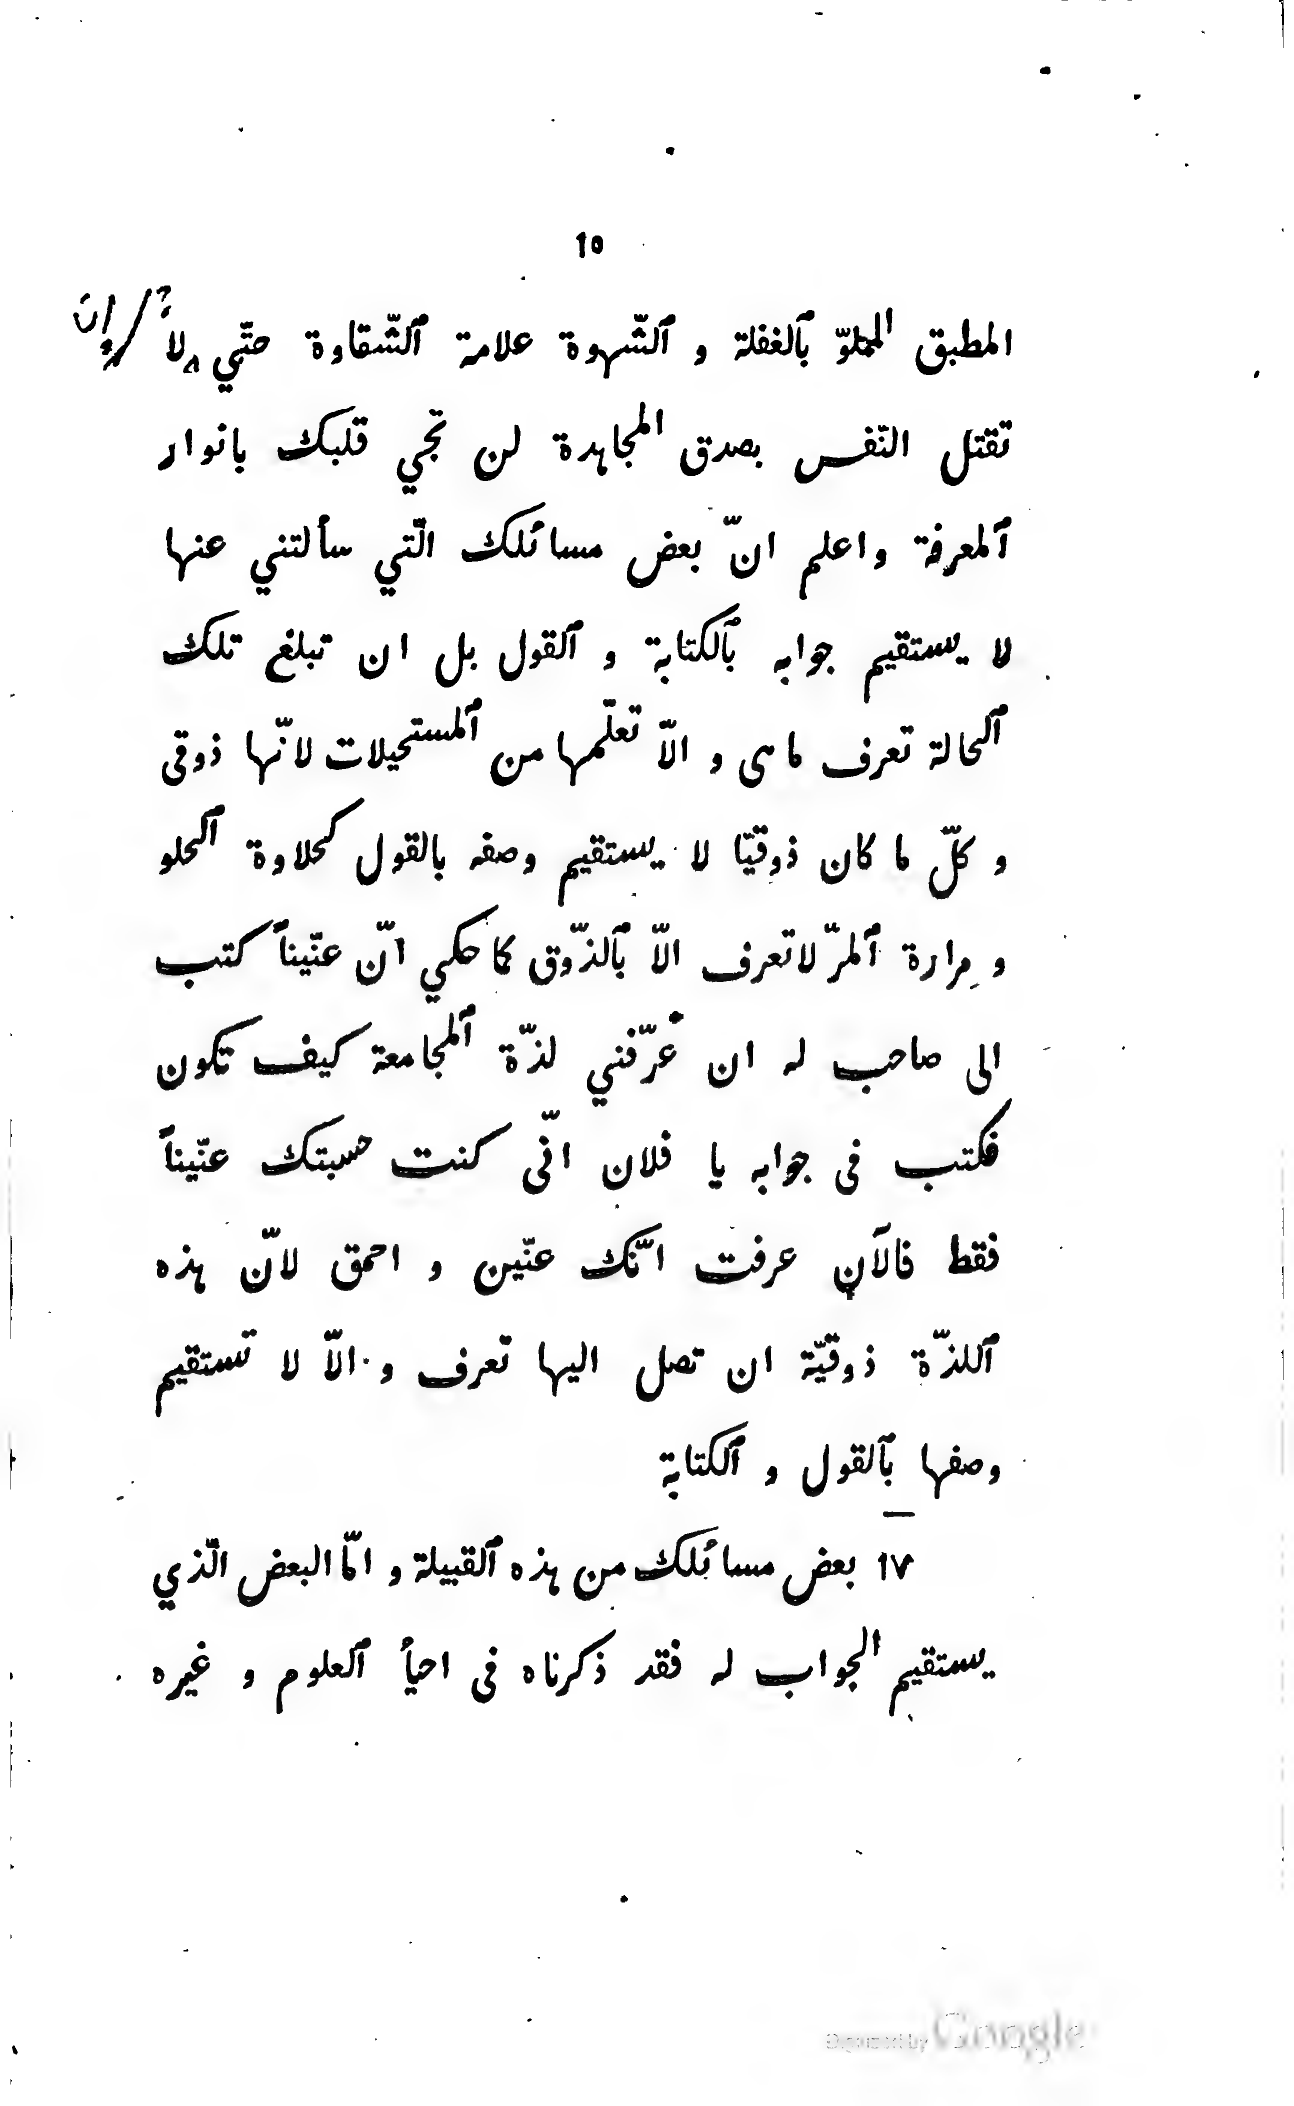 ١٥
المطبق المملوّ بٱلغفلة و ٱلشّهوة علامة ٱلشّقاوة حتّي لا
إن
تقتل النّفس بصدق المجاهدة لن تحي قلبك بانوار
ٱلمعرفة واعلم انّ بعض مسائلك الّتي سألتني عنها
لا يستقيم جوابه بٱلكتابة و ٱلقول بل ان تبلغ تلك
ٱلحالة تعرف ما هى و الّا تعلّمها من ٱلمستحيلات لانّها ذوقى
و كلّ ما كان ذوقيّا لا يستقيم وصفه بالقول كحلاوة ٱلحلو
و مرارة ٱلمرّ لا تعرف الّا بٱلذّوق كما حكي انّ عنّيناً كتب
الى صاحب له ان عرّفني لذّة ٱلمجامعة كيف تكون
فكتب فى جوابه يا فلان انّى كنت حسبتك عنّيناً
فقط فالآن عرفت انّك عنّين و احمق لانّ هذه
ٱللذّة ذوقيّة ان تصل اليها تعرف و الّا لا تستقيم
وصفها بٱلقول و ٱلكتابة
١٧ بعض مسائلك من هذه ٱلقبيلة و امّا البعض الّذي
يستقيم الجواب له فقد ذكرناه فى احيأ ٱلعلوم و غيره
Digitized by Google